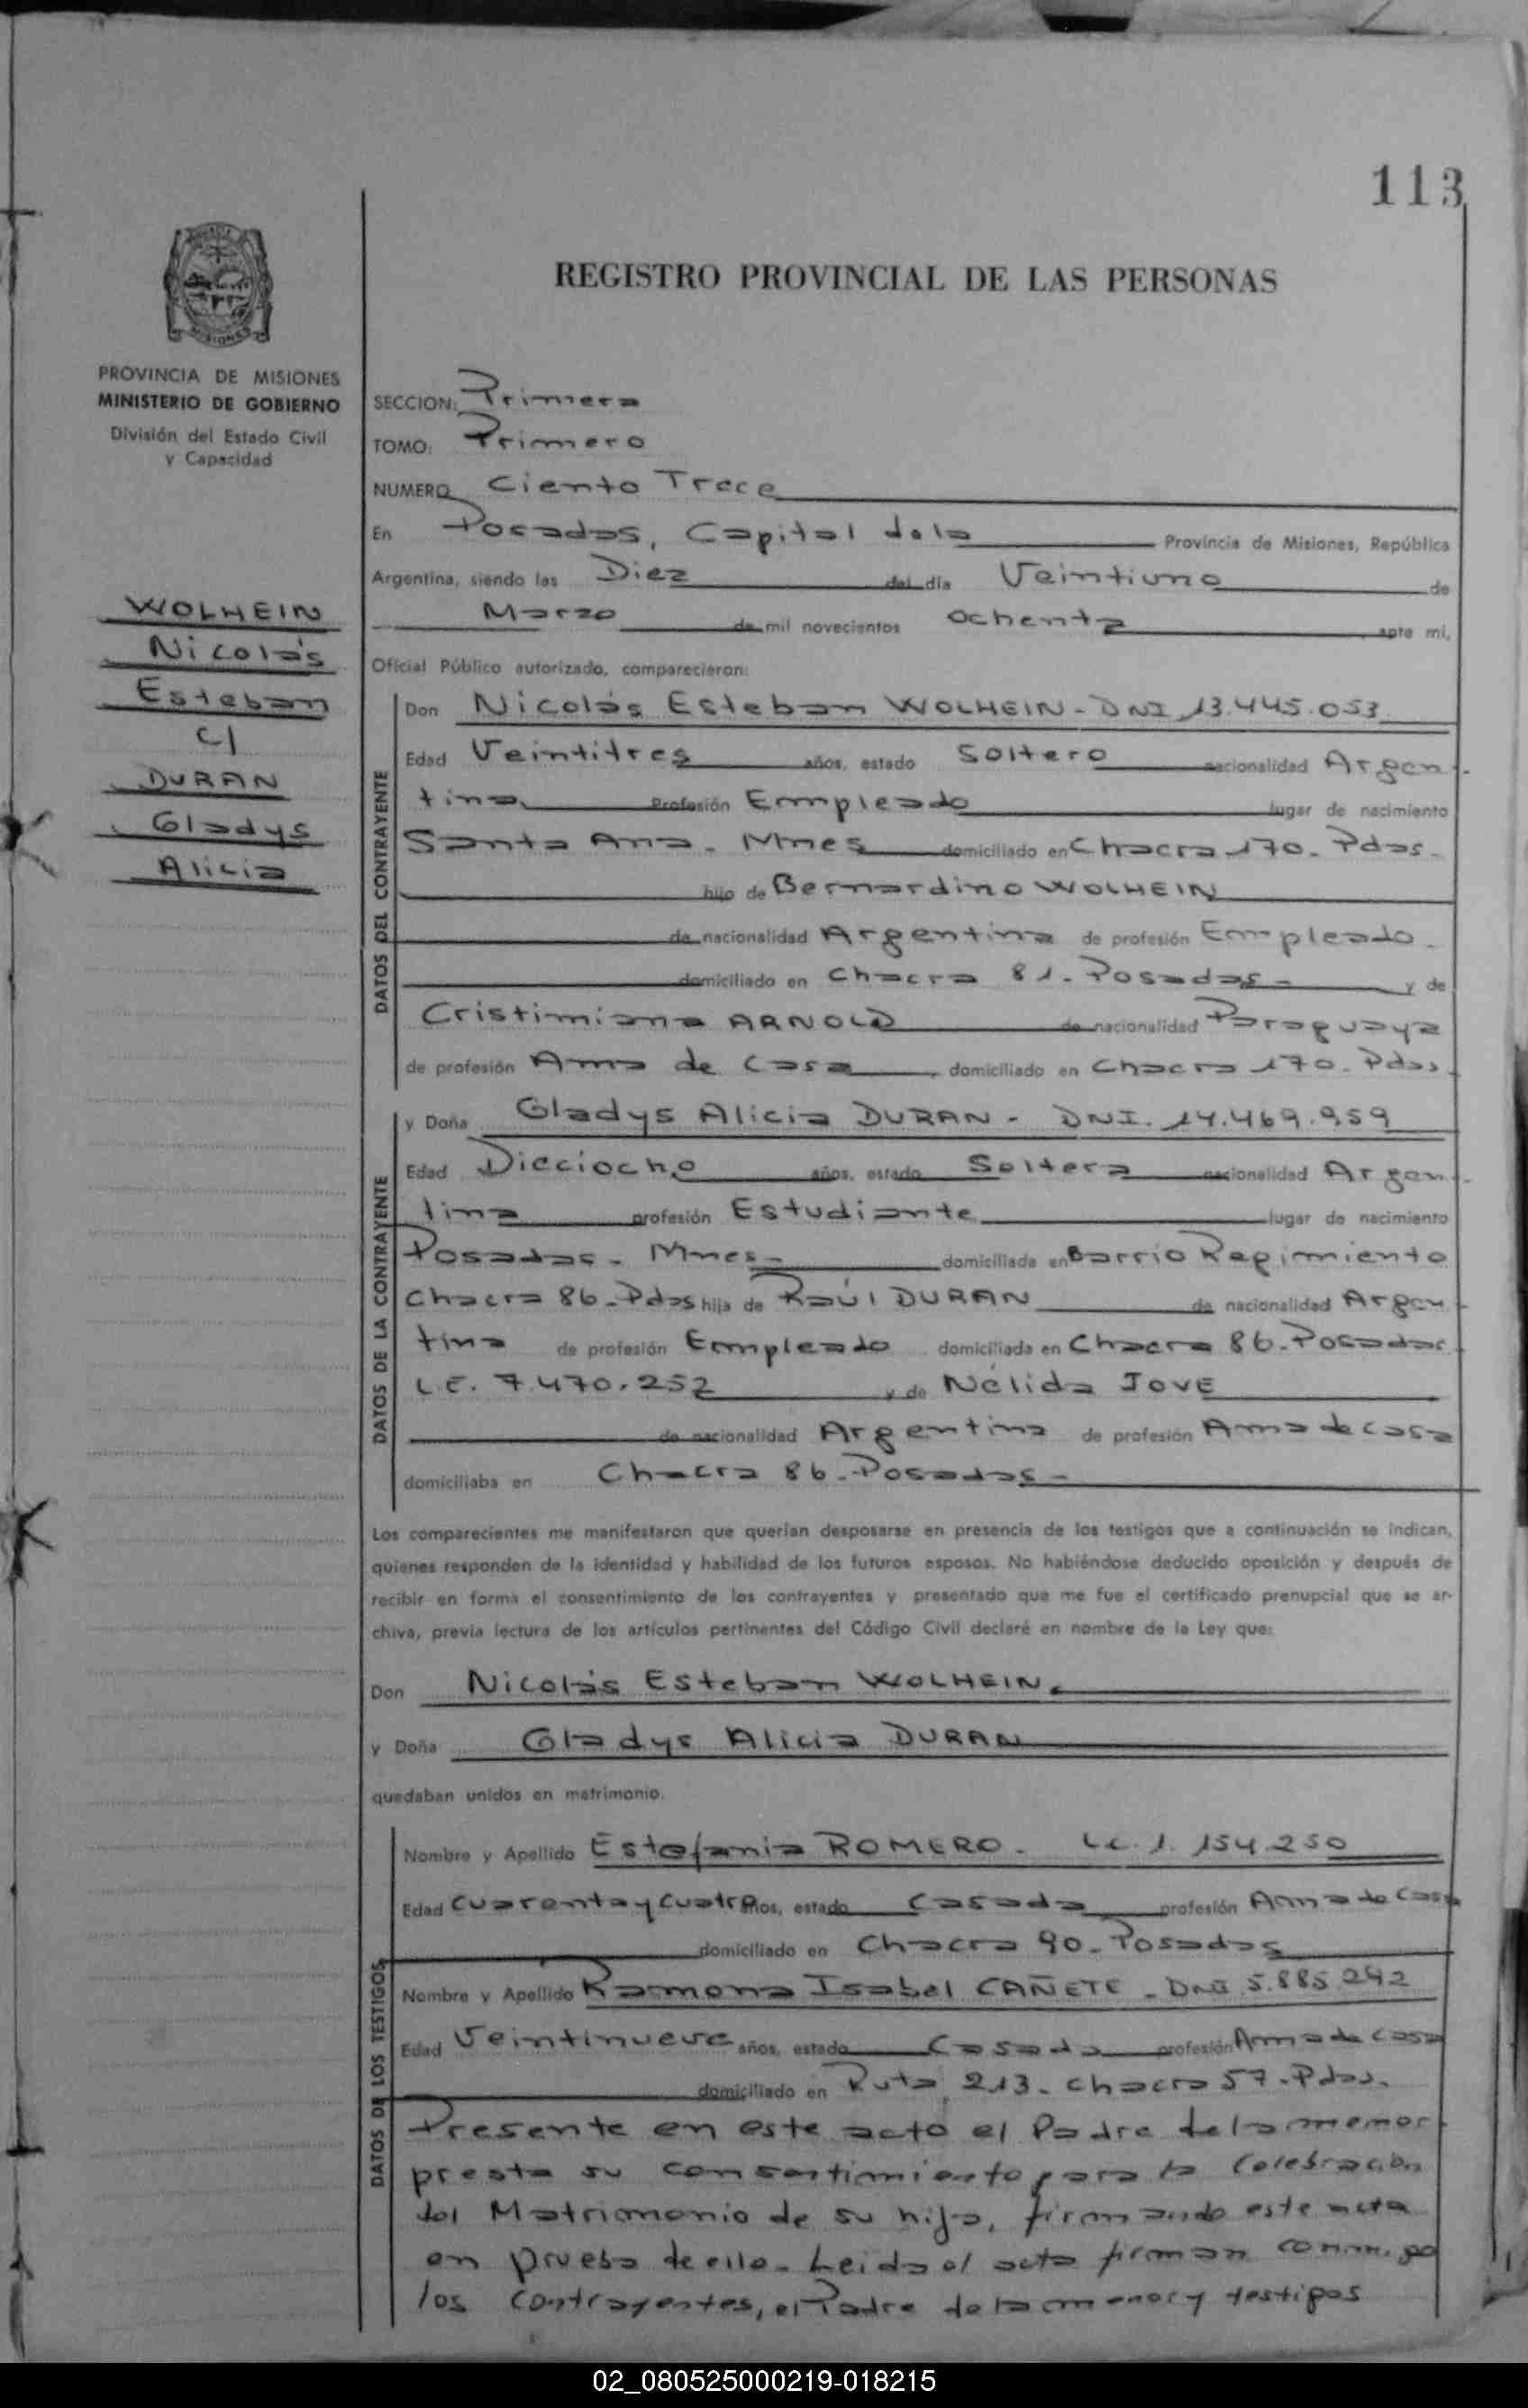 113
REGISTRO PROVINCIAL DE LAS PERSONAS
MISIONES
PROVINCIA DE MISIONES
MINISTERIO DE GOBIERNO
División del Estado Civil
y Capacidad
WOLHEIN
Nicolás
Esteban
c/
DURAN
Gladys
Alicia
SECCION: Primera
TOMO: Primero
NUMERO Ciento Trece
En Posadas, Capital dela Provincia de Misiones, República
Argentina, siendo las Diez del día Veintiuno de
Marzo de mil novecientos ochenta ante mí,
Oficial Público autorizado, comparecieron:
DATOS DEL CONTRAYENTE
Don Nicolás Esteban WOLHEIN - DNI 13.445.053
Edad Veintitres años, estado Soltero nacionalidad Argen-
tina. Profesión Empleado lugar de nacimiento
Santa Ana - Mnes domiciliado en Chacra 170. Pdas.
hijo de Bernardino WOLHEIN
de nacionalidad Argentina de profesión Empleado.
domiciliado en Chacra 81. Posadas - y de
Cristiniana ARNOLD de nacionalidad Paraguaya
de profesión Ama de Casa domiciliado en Chacra 170. Pdas.
DATOS DE LA CONTRAYENTE
y Doña Gladys Alicia DURAN - DNI. 14.469.959
Edad Dieciocho años, estado Soltera nacionalidad Argen-
tina profesión Estudiante lugar de nacimiento
Posadas - Mnes - domiciliada en Barrio Regimiento
Chacra 86. Pdas hija de Raúl DURAN de nacionalidad Argen-
tina de profesión Empleado domiciliada en Chacra 86. Posadas
L.E. 7.470.252 y de Nélida JOVE
de nacionalidad Argentina de profesión Ama de casa
domiciliaba en Chacra 86. Posadas -
Los comparecientes me manifestaron que querían desposarse en presencia de los testigos que a continuación se indican,
quienes responden de la identidad y habilidad de los futuros esposos. No habiéndose deducido oposición y después de
recibir en forma el consentimiento de los contrayentes y presentado que me fue el certificado prenupcial que se ar-
chiva, previa lectura de los artículos pertinentes del Código Civil declaré en nombre de la Ley que:
Don Nicolás Esteban WOLHEIN.
y Doña Gladys Alicia DURAN
quedaban unidos en matrimonio.
DATOS DE LOS TESTIGOS
Nombre y Apellido Estefania ROMERO. L.C. 1.154.250
Edad Cuarenta y cuatro años, estado Casada profesión Ama de Casa
domiciliado en Chacra 90. Posadas
Nombre y Apellido Ramona Isabel CAÑETE - DNI 5.885.242
Edad Veintinueve años, estado Casada profesión Ama de Casa
domiciliado en Ruta 213. Chacra 57. Pdas.
Presente en este acto el Padre de la menor
presta su consentimiento para la Celebración
del Matrimonio de su hija, firmando este acta
en prueba de ello. Leida el acta firman conmigo
los contrayentes, el Padre de la menor y testigos
02_080525000219-018215